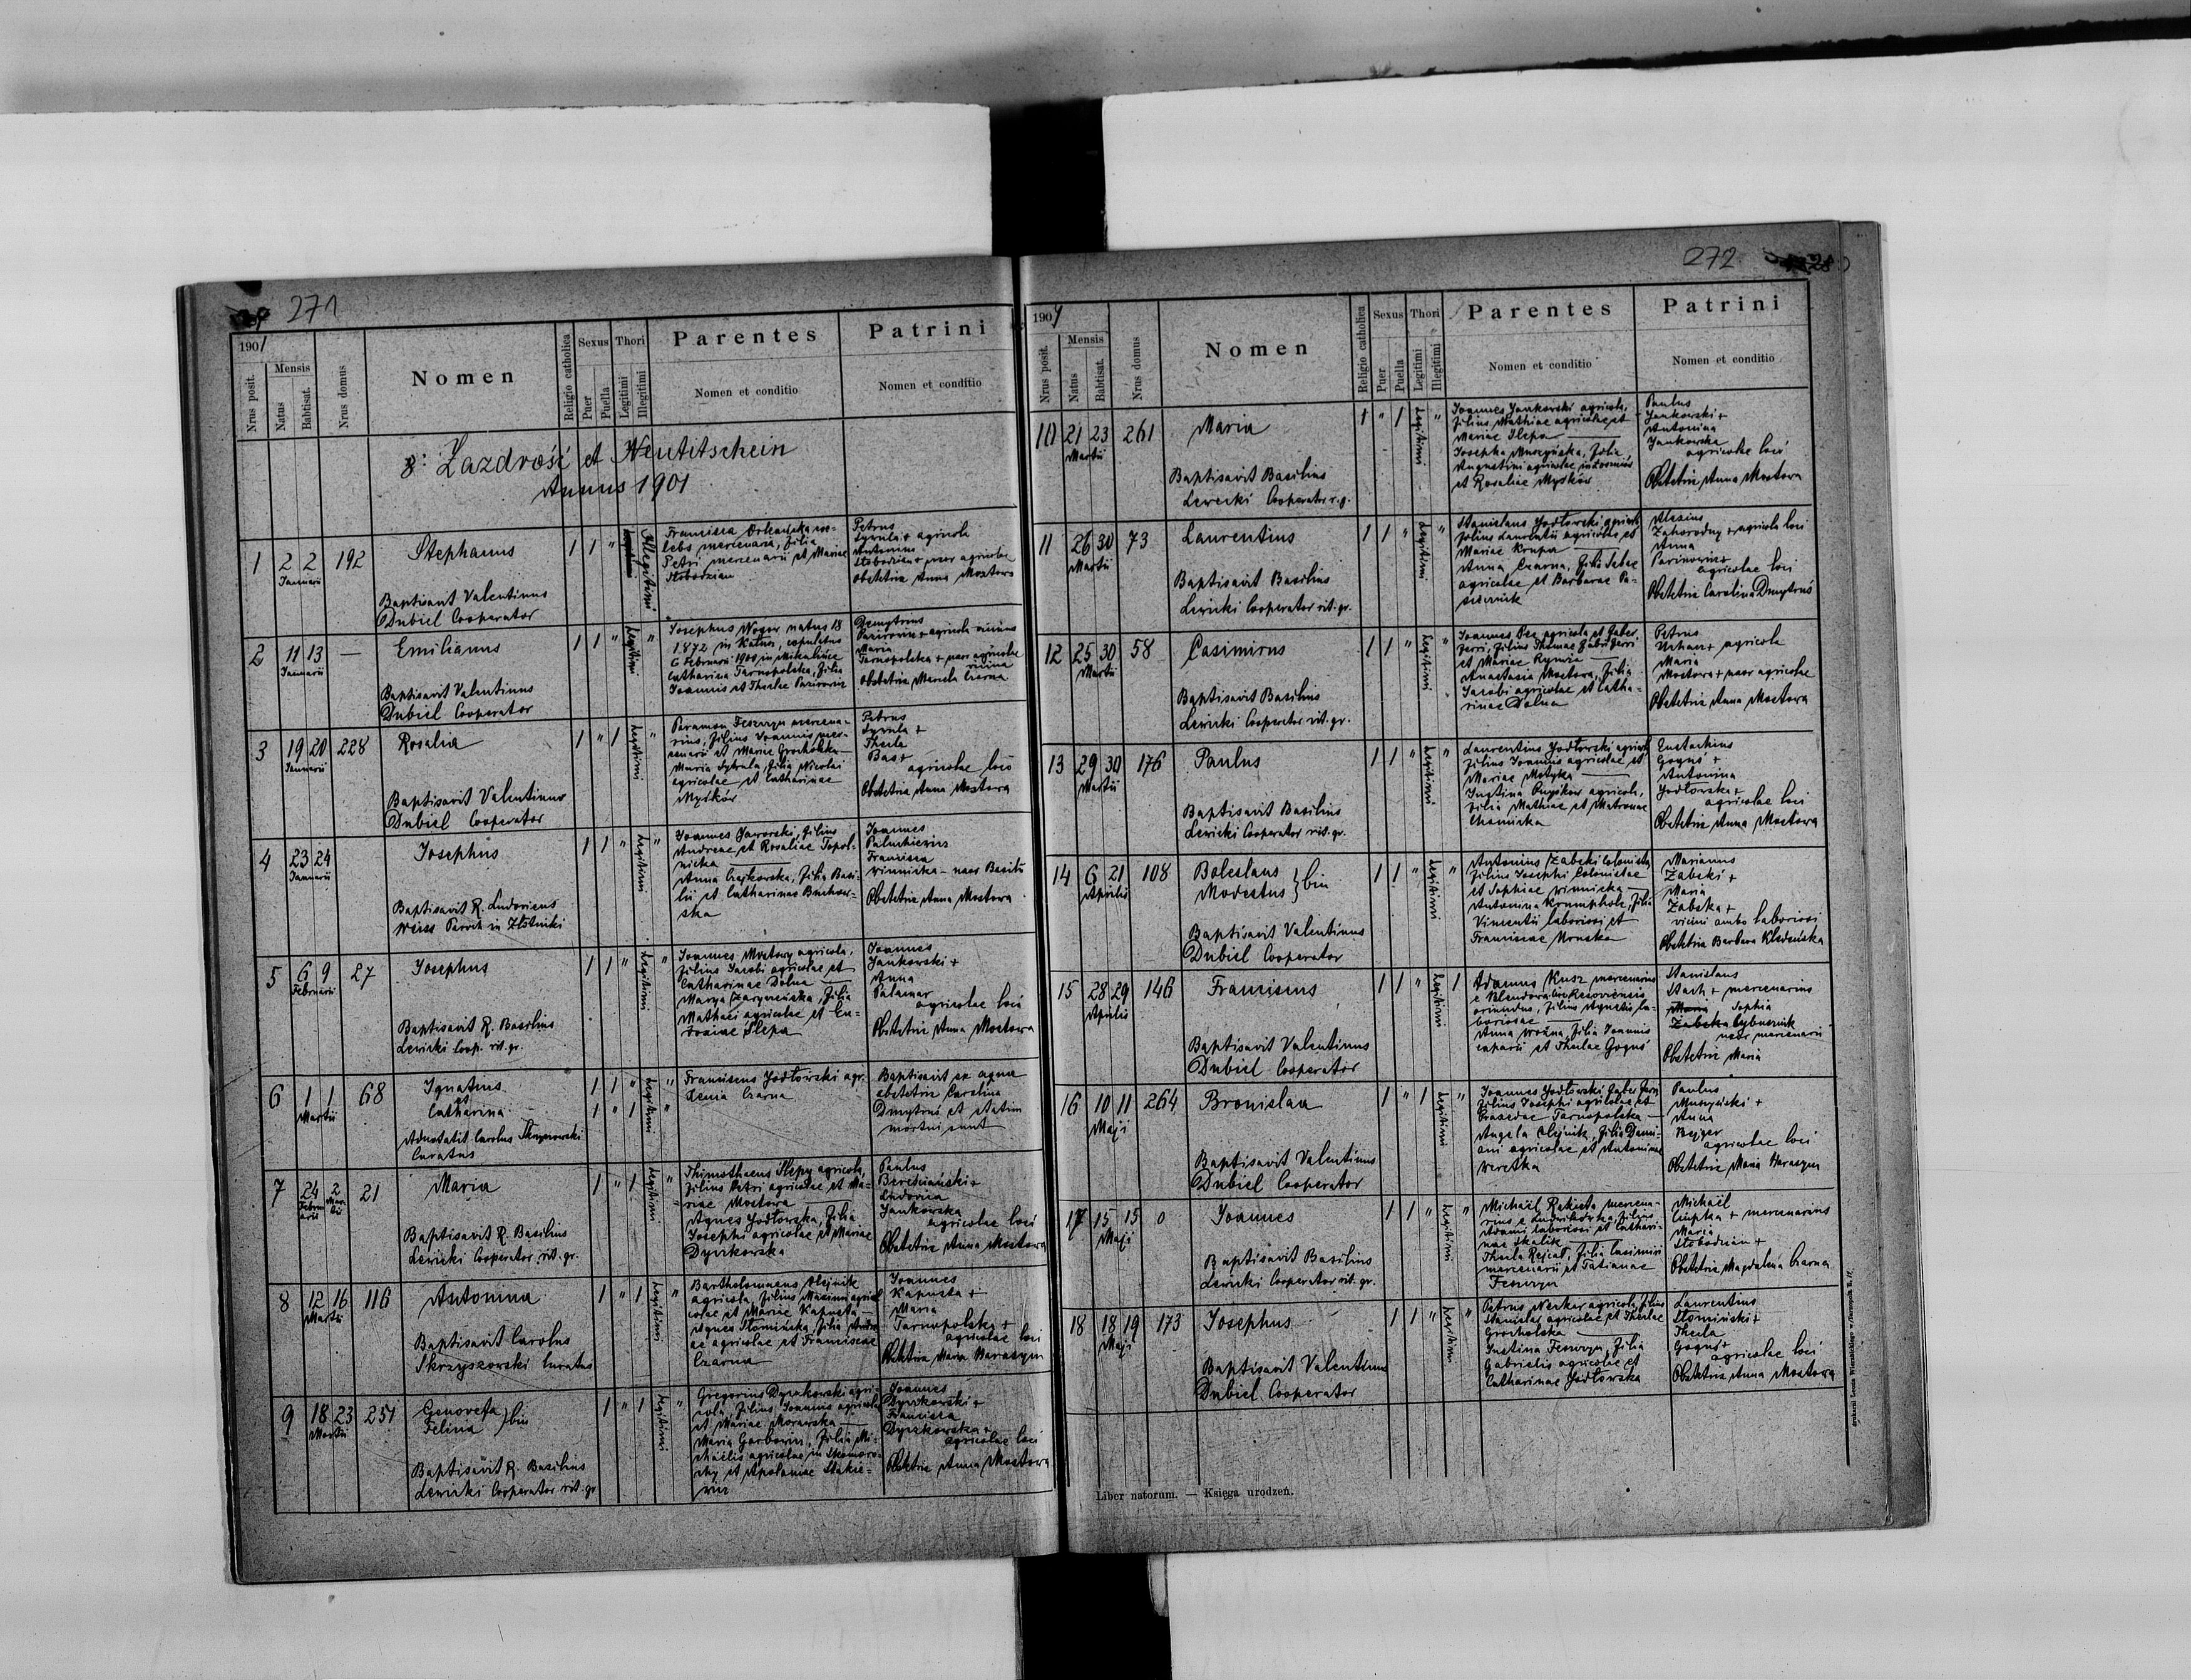 271
1901
Nrus posit.
Mensis
Natus
Babtisat.
Nrus domus
Nomen
Religio catholica
Sexus
Puer
Puella
Thori
Legitimi
Illegitimi
Parentes
Nomen et conditio
Patrini
Nomen et conditio
8. Zazdrość et Neutitschein
Annus 1901
1 2 2 192 Stephanus 1 1 " Illegitimi
Januarii
Baptisavit Valentinus
Dubiel Cooperator
Petri mercenarii et Mariae
Słobodzian
Petrus
agricola
Antonina
Obstetrix Anna Mostowa
2 11 13 — Emilianus 1 1 " Legitimi "
Januarii
Baptisavit Valentinus
Dubiel Cooperator
Josephus Woger natus 18
1872 in
6 Februarii 1900 in Mikulińce
Catharina Tarnopolska, filia
Joannis et Theclae
Demytrius
agricola
Maria
Tarnopolska + uxor agricolae
Obstetrix
3 19 20 228 Rosalia 1 " 1 Legitimi "
Januarii
Baptisavit Valentinus
Dubiel Cooperator
rius, filius Joannis mer-
cenarii et Mariae Grocholska —
Maria filia Nicolai
agricolae et Catharinae
Myśków
Petrus
Thecla
Bas +
agricolae loci
Obstetrix Anna Mostowa
4 23 24 Josephus 1 1 " Legitimi "
Januarii
Baptisavit R. Ludovicus
Weiss Paroch in Złotniki
Joannes Jaworski, filius
Andreae et Rosaliae Topol-
nicka —
Anna Czajkowska, filia Basi-
lii et Catharinae
Joannes
Francisca
Winnicka — uxor Basilii
Obstetrix Anna Mostowa
5 6 9 27 Josephus 1 1 " Legitimi "
Februarii
Baptisavit R. Basilius
Lewicki Coop. rit. gr.
Joannes Mostowy agricola,
filius Jacobi agricolae et
Catharinae Dolna —
filia
Mathaei agricolae et Eu-
Ślepa
Joannes
Jankowski +
Anna
Palamar
agricolae loci
Obstetrix Anna Mostowa
6 1 1 68 Ignatius 1 1 " Legitimi "
Martii
et
Catharina 1 " 1 "
Carolus
Curatus
Franciscus Jodłowski agr.
Xenia Czarna
Baptisavit ex aqua
obstetrix Carolina
Dmytruś et statim
mortui sunt
7 24 2 21 Maria 1 " 1 Legitimi "
Februarii Martii
Baptisavit R. Basilius
Lewicki Cooperator rit. gr.
Thimothaeus Ślepy agricola,
filius Petri agricolae et Ma-
riae Mostowa —
Agnes Jodłowska, filia
Josephi agricolae et Mariae
Dyczkowska
Paulus
Bereziański +
Ludovica
Jankowska
agricolae loci
Obstetrix Anna Mostowa
8 12 16 116 Antonina 1 " 1 Legitimi "
Martii
Baptisavit Carolus
Skrzyszowski Curatus
Bartholomaeus Olejnik
agricola, filius Maximi agri-
colae et Mariae Kapusta —
Agnes Słomińska, filia Andre-
ae agricolae et Franciscae
Czarna
Joannes
Kapusta +
Maria
Tarnopolska +
agricolae loci
Obstetrix Maria Harasym
9 18 23 251 Genovefa
Felicia } bin 1 " 1 Legitimi "
Martii
Baptisavit R. Basilius
Lewicki Cooperator rit. gr.
Gregorius Dyczkowski agri-
cola, filius Joannis agricolae
et Mariae Morawska —
Maria Garbowin, filia Mi-
chaelis agricolae in Skomoro-
chy et Apoloniae
Joannes
Dyczkowski +
Francisca
Dyczkowska +
agricolae loci
Obstetrix Anna Mostowa
272
1901
Nrus posit.
Mensis
Natus
Babtisat.
Nrus domus
Nomen
Religio catholica
Sexus
Puer
Puella
Thori
Legitimi
Illegitimi
Parentes
Nomen et conditio
Patrini
Nomen et conditio
10 21 23 261 Maria 1 " 1 Legitimi "
Martii
Baptisavit Basilius
Lewicki Cooperator r.g.
Joannes Jankowski agricola,
filius Mathiae agricolae et
Mariae Ślepa —
Josepha Muszyńska, filia
Augustini agricolae in
et Rosaliae Myśków
Paulus
Jankowski +
Antonina
Jankowska
agricolae loci
Obstetrix Anna Mostowa
11 26 30 73 Laurentius 1 1 " Legitimi "
Martii
Baptisavit Basilius
Lewicki Cooperator rit. gr.
Stanislaus Jodłowski agricola
filius Laurentii agricolae et
Mariae Krupa —
Anna Czarna, filia
agricolae et Barbarae Pa-
siecznik
Alexius
Zahorodny + agricola loci
Anna
agricolae loci
Obstetrix Carolina Dmytruś
12 25 30 58 Casimirus 1 1 " Legitimi "
Martii
Baptisavit Basilius
Lewicki Cooperator rit. gr.
Joannes agricola et faber
ferri, filius Thomae fabri ferri
et Mariae
Anastasia Mostowa, filia
Jacobi agricolae et Catha-
rinae Dolna
Petrus
Urban + agricola
Maria
Mostowa + uxor agricolae
Obstetrix Anna Mostowa
13 29 30 176 Paulus 1 1 " Legitimi "
Martii
Baptisavit Basilius
Lewicki Cooperator rit. gr.
Laurentius Jodłowski agricola
filius Joannis agricolae et
Mariae Motyka —
Justina agricola,
filia Mathiae et Matronae
Eustachius
Goguś +
Antonina
Jodłowska +
agricolae loci
Obstetrix Anna Mostowa
14 6 21 108 Boleslaus
Modestus } bin 1 1 " Legitimi "
Aprilis
Baptisavit Valentinus
Dubiel Cooperator
Antonius Żabski Colonista
filius Josephi Colonistae
et Sophiae Winnicka —
Antonina Krumpholz, filia
Vincentii laboriosi et
Franciscae
Marianus
Żabski +
Maria
Żabska +
vicini ambo laboriosi
Obstetrix Barbara
15 28 29 146 Franciscus 1 1 " Legitimi 1
Aprilis
Baptisavit Valentinus
Dubiel Cooperator
Adamus Kusz mercenarius
oriundus, filius Agnetis la-
boriosae —
Anna filia Joannis
et Theclae Goguś
Stanislaus
Stach + mercenarius
Maria Sophia
Żabska
uxor mercenarii
Obstetrix Maria
16 10 11 264 Bronislaa 1 " 1 Legitimi "
Maji
Baptisavit Valentinus
Dubiel Cooperator
Joannes Jodłowski faber ferri
filius Josephi agricolae et
Tarnopolska —
Angela Olejnik, filia Dami-
ani agricolae et Antoninae
Weretka
Paulus
Muszyński +
Anna
Bejger
agricolae loci
Obstetrix Maria Harasym
17 15 15 0 Joannes 1 1 " Legitimi "
Maji
Baptisavit Basilius
Lewicki Cooperator rit. gr.
Michaël Rakieta mercena-
rius e filius
Adami laboriosi et Cathari-
nae Skalik —
Thecla Rejcat, filia Casimiri
mercenarii et Tatianae
Feszczyn
Michaël
+ mercenarius
Maria
Słobodzian +
Obstetrix Magdalena Czarna
18 18 19 173 Josephus 1 1 " Legitimi "
Maji
Baptisavit Valentinus
Dubiel Cooperator
Petrus agricola, filius
Stanislai agricolae et Theclae
Grocholska —
Justina Feszczyn, filia
Gabrielis agricolae et
Catharinae Jodłowska
Laurentius
Słomiński +
Thecla
Goguś +
agricolae loci
Obstetrix Anna Mostowa
Liber natorum. — Księga urodzeń.